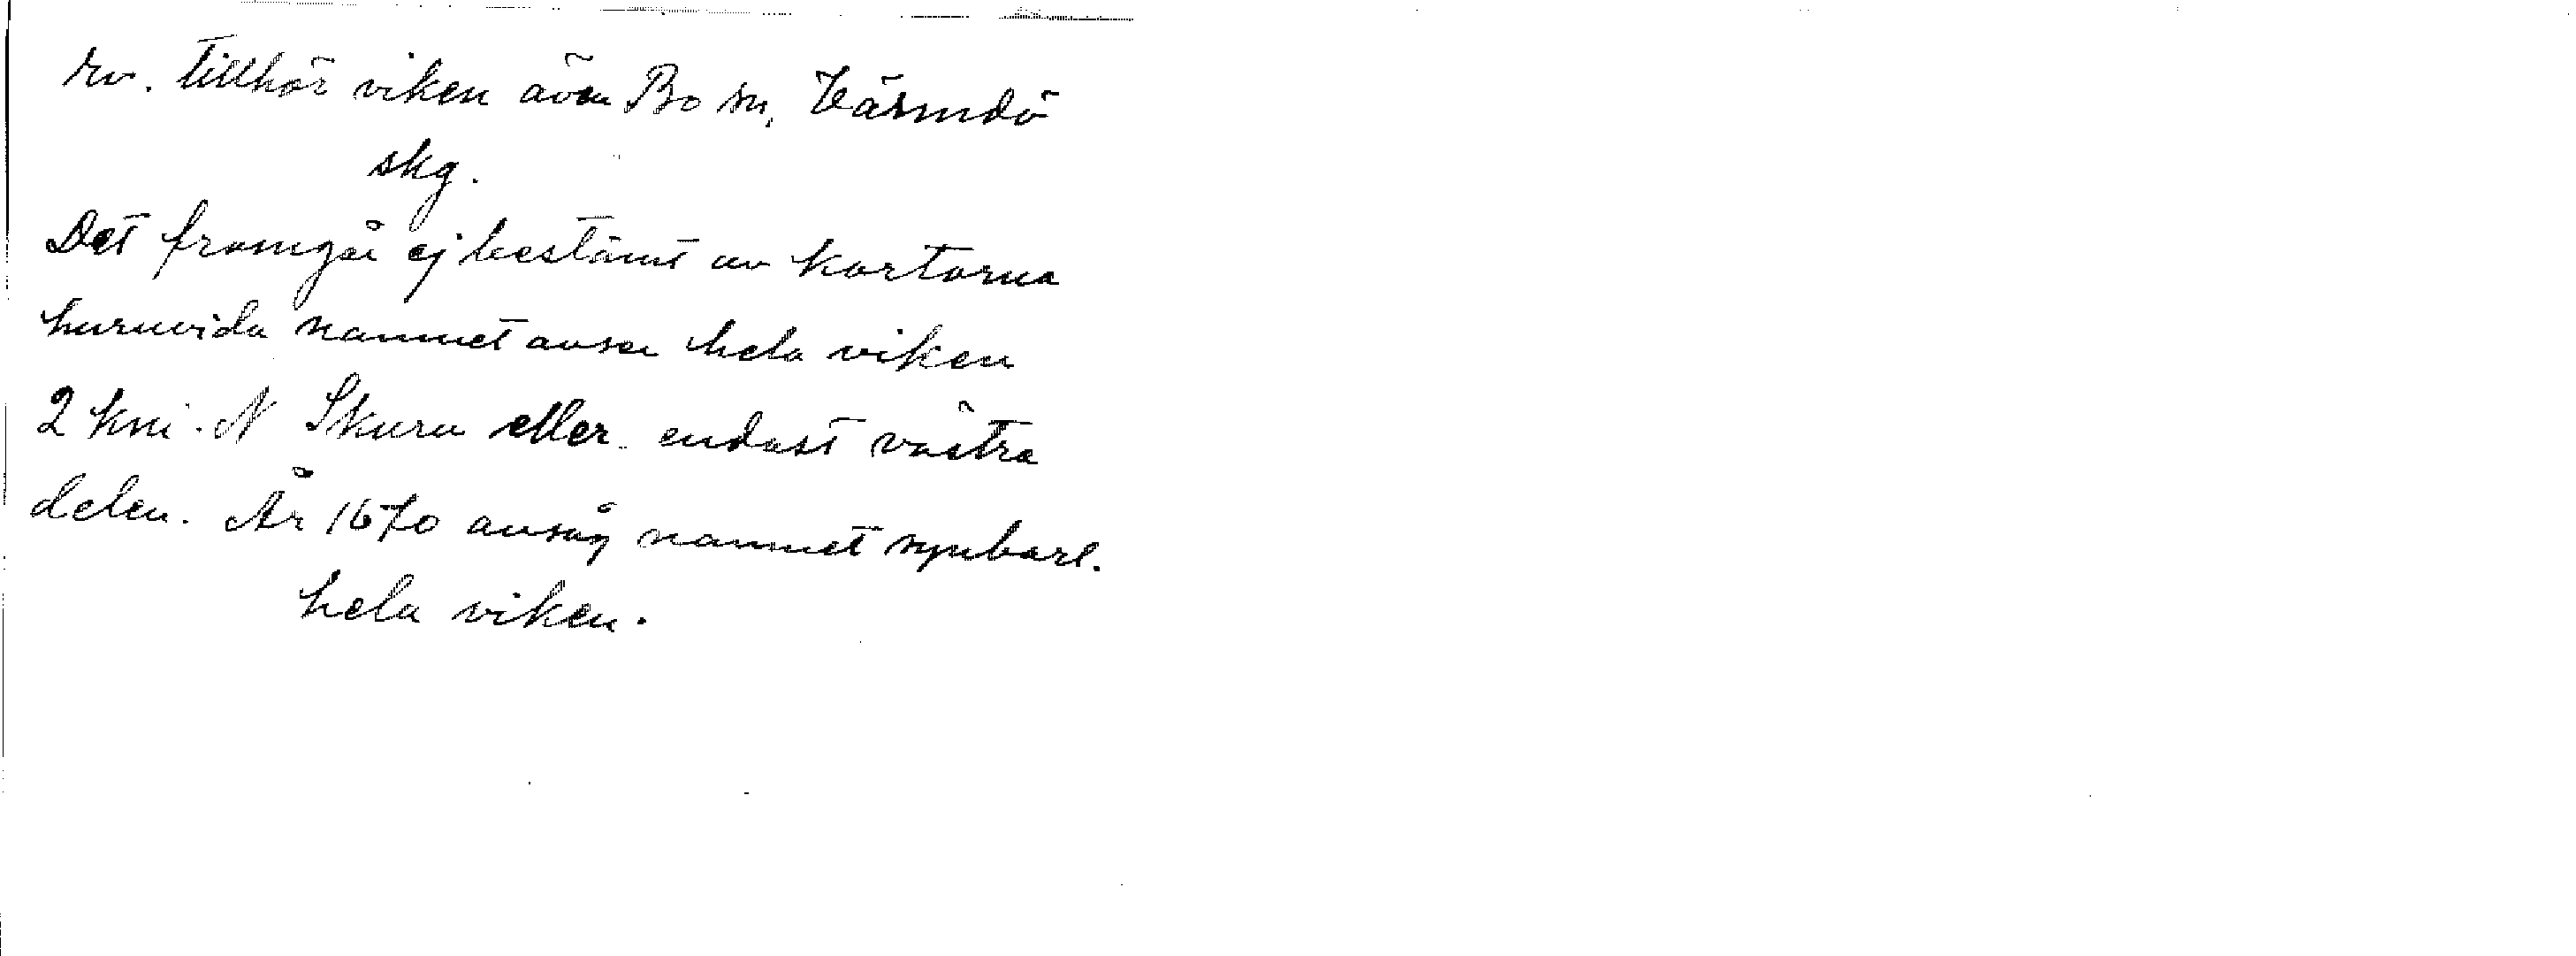 Nv. tillhör viken även Bo sn, Värmdö
skg.
Det framgår ej bestämt av kartorna
huruvida namnet avser hela viken
2 km. N Skuru eller endast västra
delen. År 1670 avsåg namnet synbarl.
hela viken.